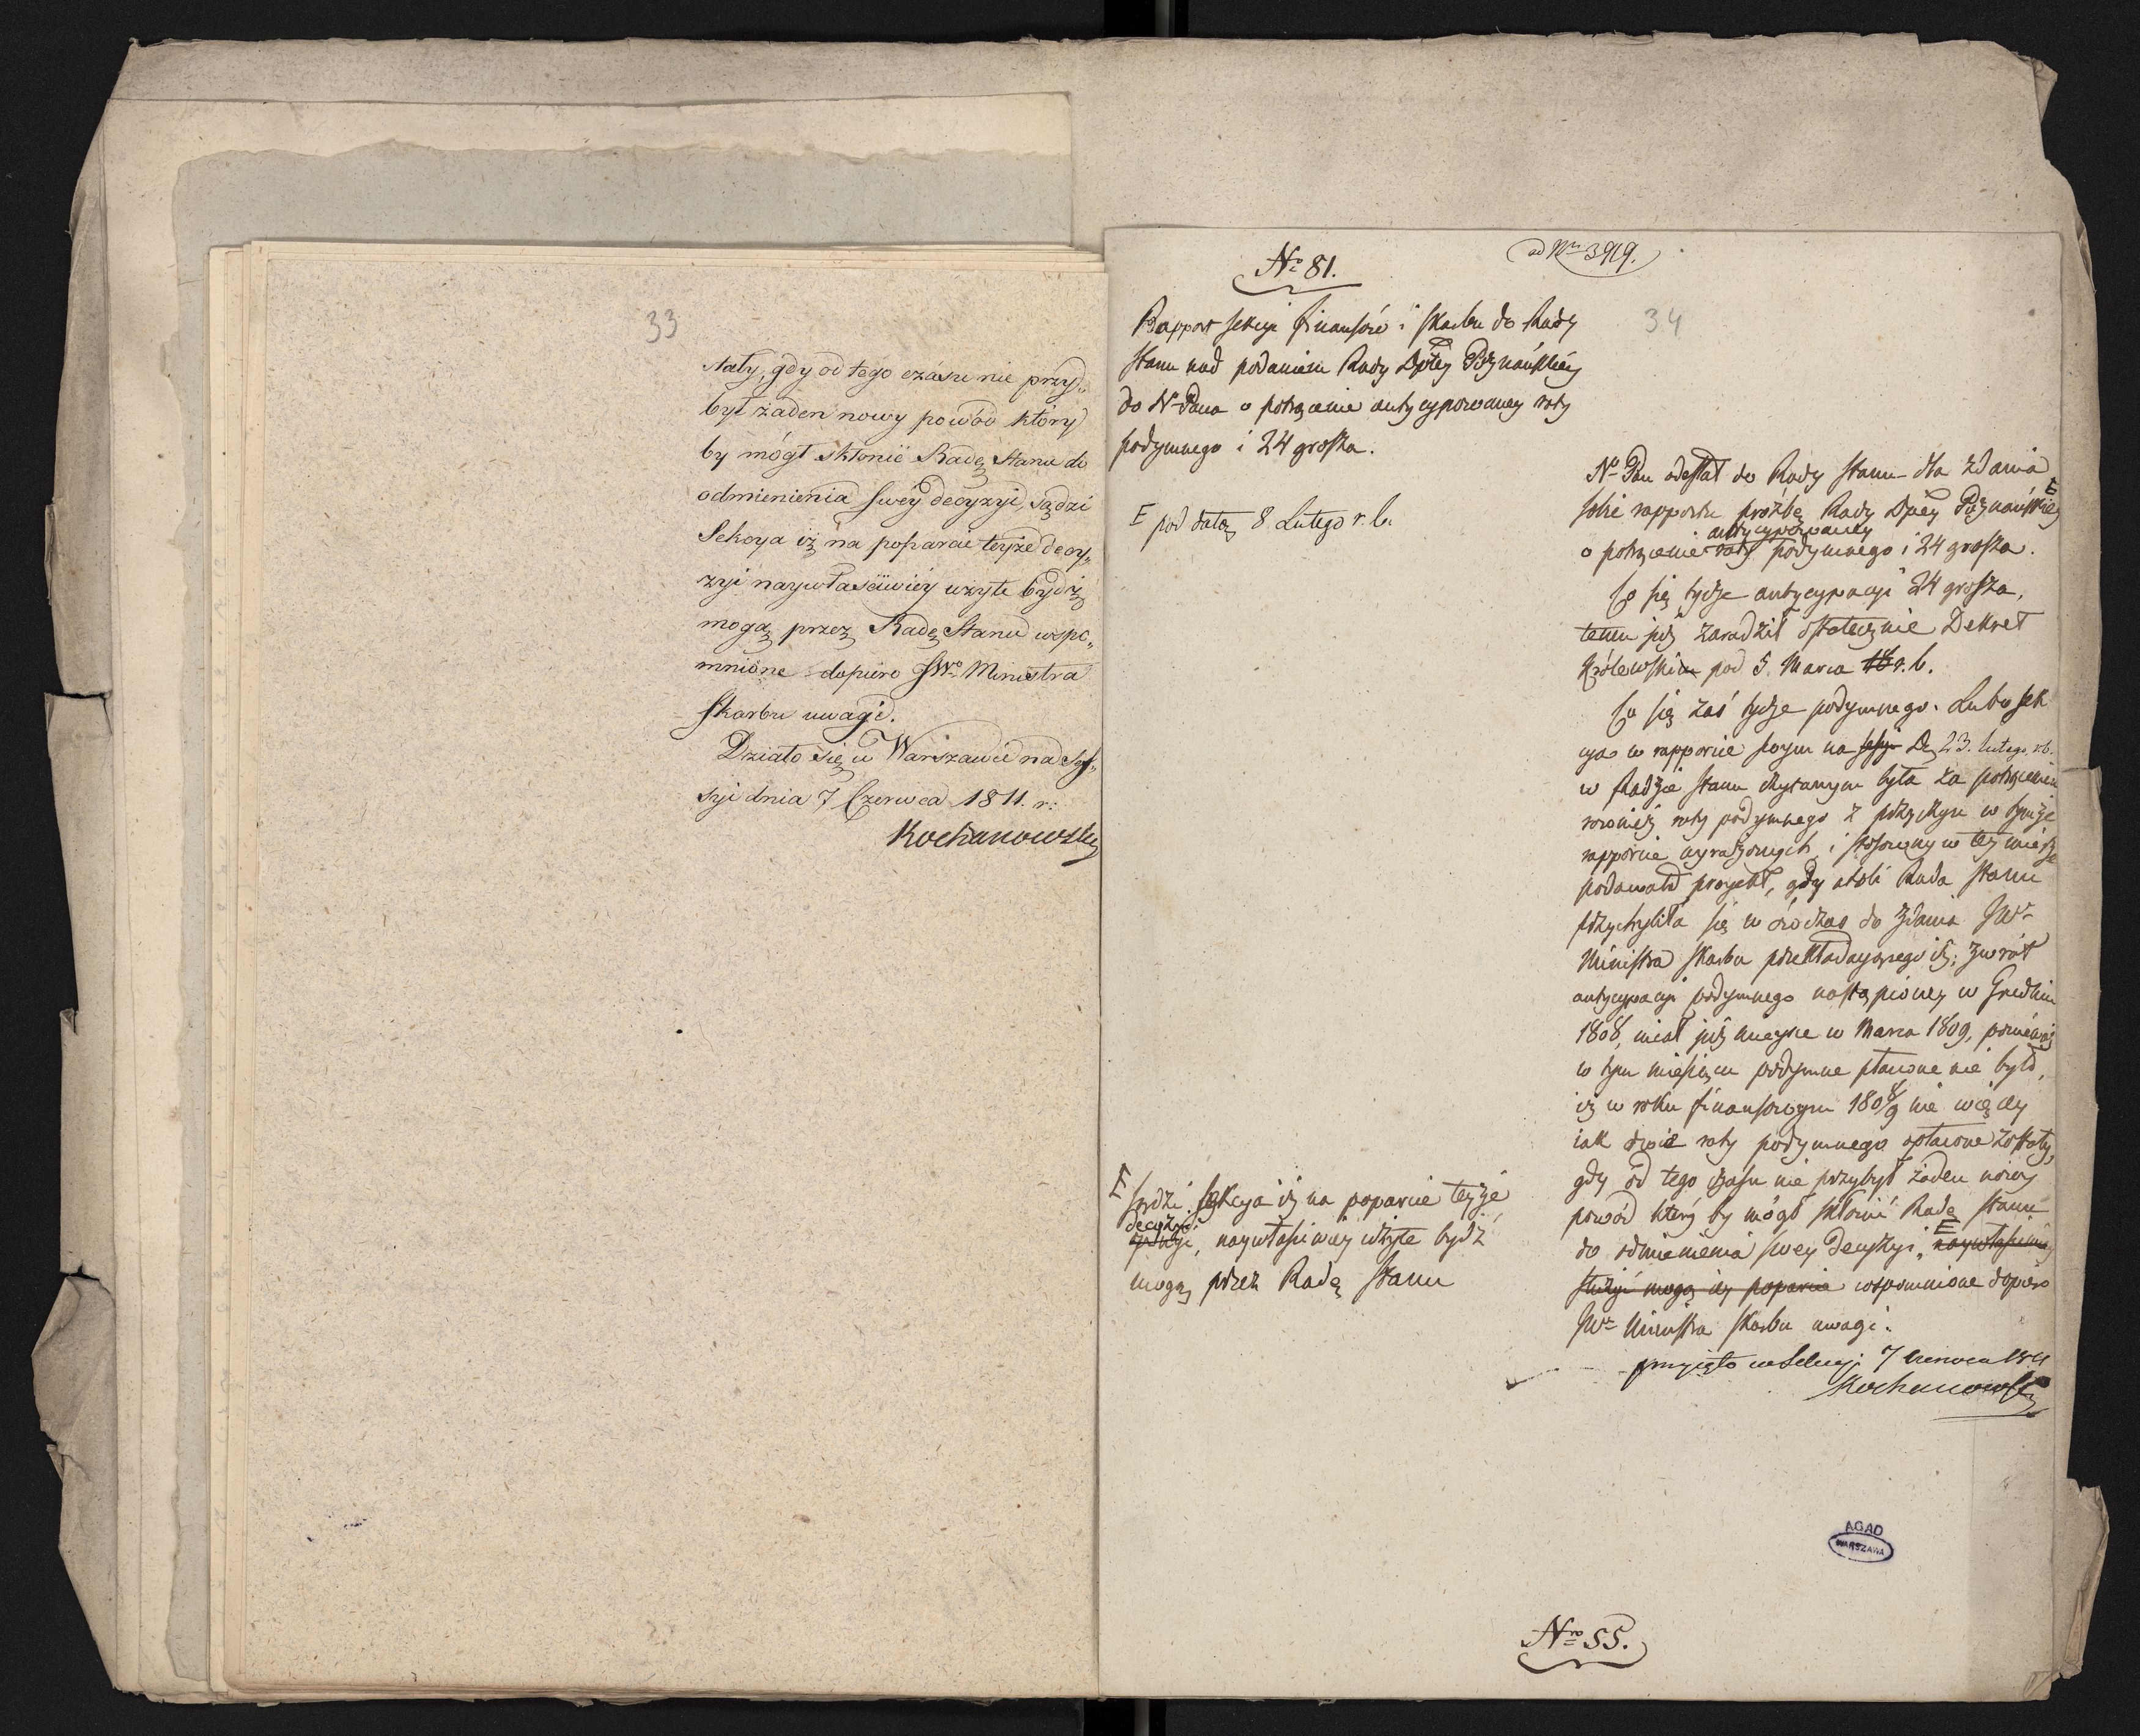 33
stały, gdy od tego czasu nie przy„
był żaden nowy powód który
by mógł skłonić Radę Stanu do
odmienienia swey decyzyi, sądzi
Sekcya iż na poparcie teyże decy„
zyi naywłaściwiéy użyte bydź
mogą przez Radę Stanu wspo„
mnione dopiero JWo Ministra
Skarbu uwagi.
Działo się w Warszawie na Ses„
syi dnia 7 Czerwca 1811. r:
Kochanowski
No 81.
ad Nrm 3919.
34
Rapport Sekcyi finansów i Skarbu do Rady
Stanu nad podaniem Rady Dptey Poznańskiéy
do N. Pana o potrącenie antycypowaney raty
podymnego i 24 grosza.
E pod datą 8 Lutego r. b.
N. Pan odesłał do Rady Stanu dla zdania
sobie rapportu prożbę Rady Dptey Poznańskiéy E
antycypowaney
o potrącenie raty podymnego i 24 grosza.
Co się tycze antycypacyi 24 grosza,
temu już zaradził ostatecznie Dekret
Królewski pod 5. Marca r. b.
Co się zaś tycze podymnego. Lubo Sek
cya w rapporcie swym na sessyi D. 23. Lutego r. b.
w Radzie Stanu czytanym była za potrąceniem
rowniez raty podymnego z przyczyn w tymże
rapporcie wyrażonych i stosowny w tey mierze
podawała projekt, gdy atoli Rada Stanu
przychyliła się w ówczas do zdania JWo
Ministra Skarbu przekładaiącego iż: zwrot
antycypacyi podymnego nastąpioney w Grudniu
1808, miał już mieysce w Marcu 1809, ponieważ
w tym miesiącu podymne płacone nie było,
iż w roku finansowym 1808/9 nie więcey
iak dwie raty podymnego opłacone zostały,
gdy od tego czasu nie przybył żaden nowy
powód który by mógł skłonić Radę Stanu
do odmienienia swey decyzyi, E naywłaściwiey
służyć mogą iey poparcia wspomnione dopiero
JWo Ministra Skarbu uwagi.
E
Sądzi Sekcya iż na poparcie teyże
decyzyi
naywłaściwiey użyte bydź
mogą przez Radę Stanu
przyięto w Sekcyi 7 Czerwca 1811
Kochanowski
AGAD
WARSZAWA
Nro 55.